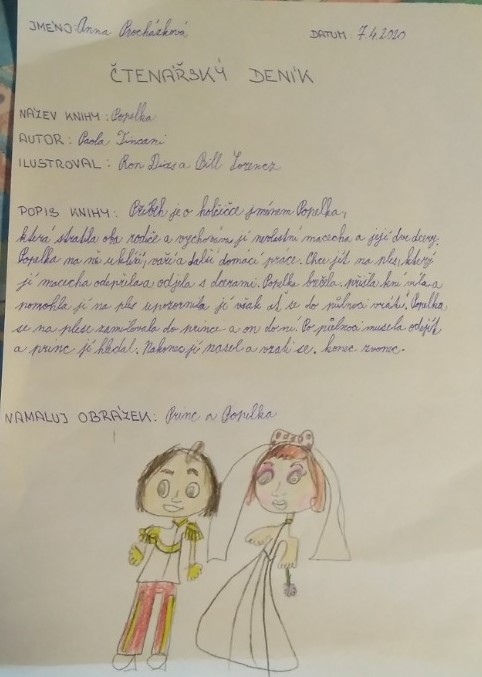 JMÉNO: Anna Procházková DATUM: 7.4.2020
ČTENÁŘSKÝ DENÍK
NÁZEV KNIHY: Popelka
AUTOR: Paola
ILUSTROVAL: Ron Dias a Bill Lorencz
POPIS KNIHY: Příběh je o holčičce jménem Popelka,
která ztratila oba rodiče a vychovává jí nevlastní macecha a její dvě dcery.
Popelka na ně uklízí, vaří a další domací práce. Chce jít na ples, který
jí macecha odepřela a odjela s dcerami. Popelka brečela, přišla k ní víla a
pomohla jí na ples upozornila jí však ať se do půlnoci vrátí. Popelka
se na plese zamilovala do prince a on do ní. Po půlnoci musela odejít
a princ jí hledal. Nakonec jí našel a vzali se. konec zvonec.
NAMALUJ OBRÁZEK: Princ a Popelka